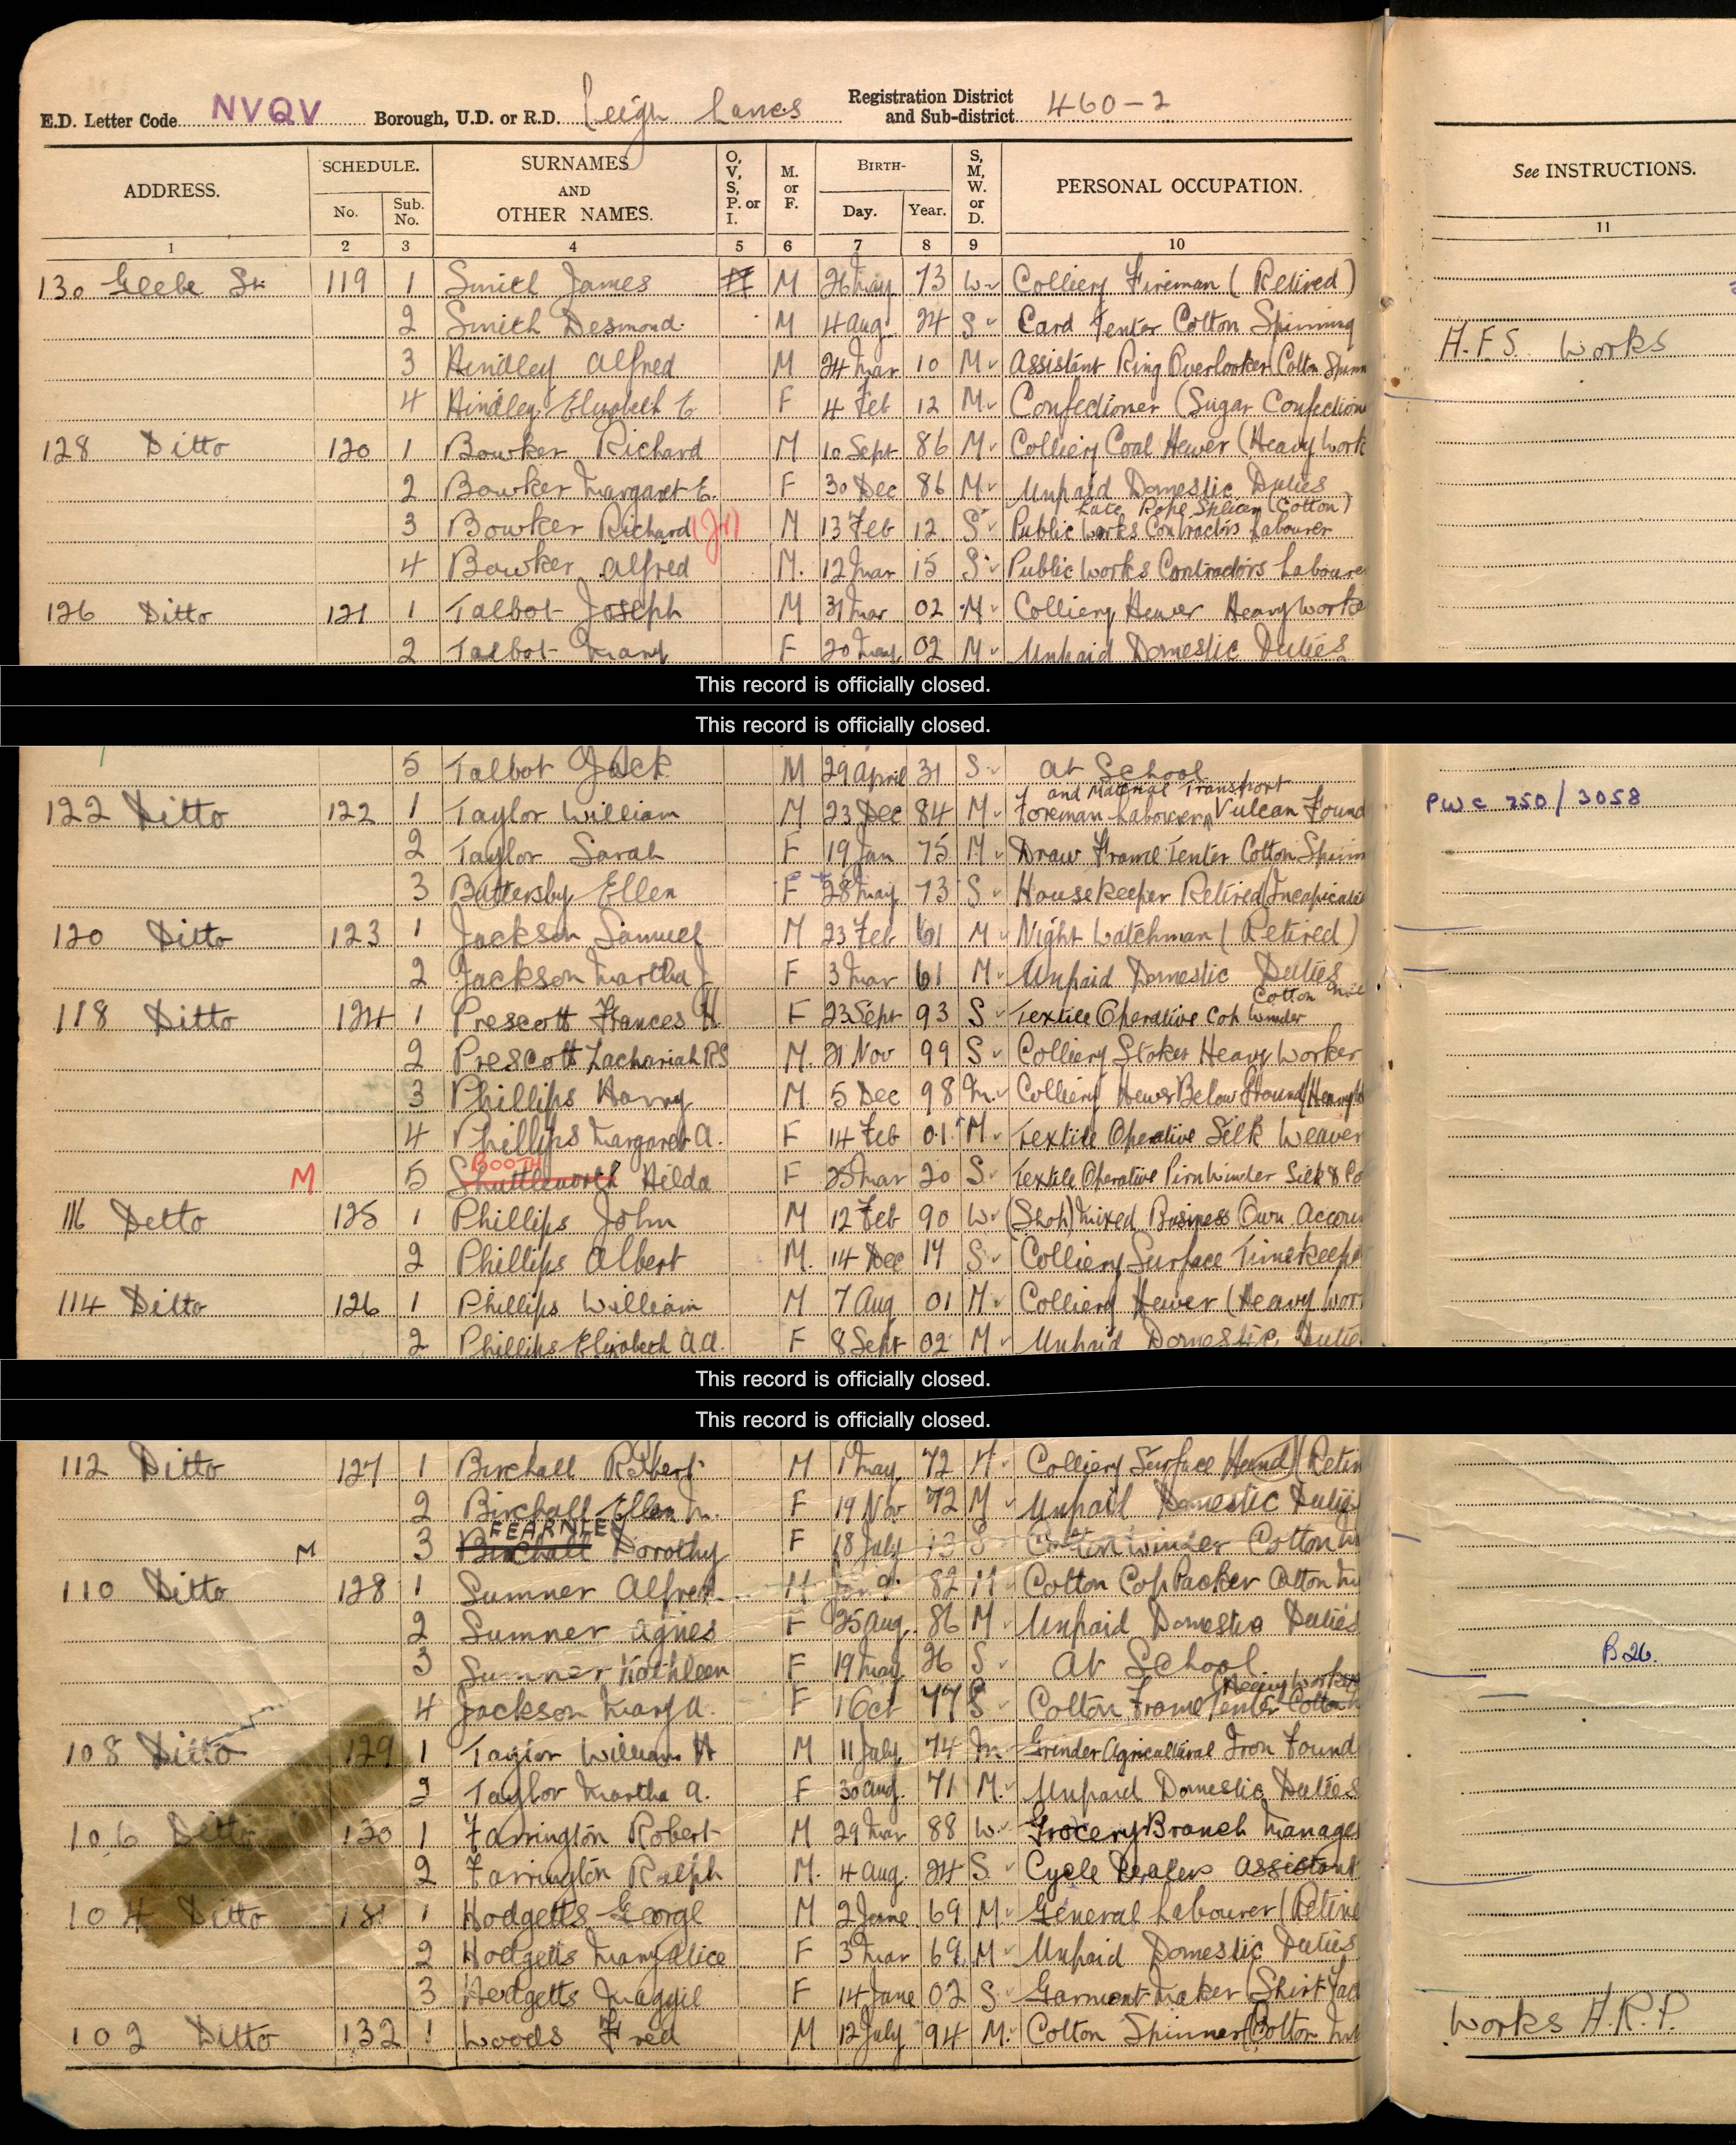 E.D. Letter Code NVQV Borough, U.D. or R.D. Leigh Lancs Registration District and Sub-district 460-2
ADDRESS. SCHEDULE. No. Sub. No. SURNAMES AND OTHER NAMES. O, V, S, P. or I. M. or F. BIRTH- Day. Year. S, M, W. or D. PERSONAL OCCUPATION. See INSTRUCTIONS.
1 2 3 4 5 6 7 8 9 10 11
130 Glebe St. 119 1 Smith James M 26 May 73 W Colliery Fireman (Retired)
2 Smith Desmond M 4 Aug 24 S Card Tentor Cotton Spinning H.F.S. Works
3 Hindley Alfred M 24 Mar 10 M Assistant Ring Overlooker Cotton Spinn
4 Hindley Elizabeth E. F 4 Feb 12 M Confectioner (Sugar Confection
128 Ditto 120 1 Bowker Richard M 10 Sept 86 M Colliery Coal Hewer (Heavy Work
2 Bowker Margaret E. F 30 Dec 86 M Unpaid Domestic Duties
Late Rope Splicer (Cotton)
3 Bowker Richard (Jr) M 13 Feb 12 S Public Works Contractors Labourer
4 Bowker Alfred M. 12 Mar 15 S Public Works Contractors Laboure
126 Ditto 121 1 Talbot Joseph M 31 Mar 02 M Colliery Hewer Heavy Worke
2 Talbot Mary F 20 May 02 M Unpaid Domestic Duties
This record is officially closed.
This record is officially closed.
5 Talbot Jack M 29 April 31 S at School
and Material Transport
122 Ditto 122 1 Taylor William M 23 Dec 84 M Foreman Labourers Vulcan Found PWC 250/3058
2 Taylor Sarah F 19 Jan 75 M Draw Frame Tenter Cotton Spinn
3 Battersby Ellen F 28 May 73 S Housekeeper Retired
120 Ditto 123 1 Jackson Samuel M 23 Feb 61 M Night Watchman (Retired)
2 Jackson Martha J F 3 Mar 61 M Unpaid Domestic Duties
Cotton
118 Ditto 124 1 Prescott Frances H F 23 Sept 93 S Textile Operative Cop Winder
2 Prescott Zachariah R S M. 21 Nov 99 S Colliery Stoker Heavy Worker
3 Phillips Harry M. 5 Dec 98 M. Colliery Hewer Below Ground
4 Phillips Margaret A. F 14 Feb 01 M Textile Operative Silk Weaver
BOOTH
M 5 Shuttleworth Hilda F 25 Mar 20 S Textile Operative Pirn Winder Silk & Co
116 Ditto 125 1 Phillips John M 12 Feb 90 W (Shop) Mixed Business Own Accoun
2 Phillips Albert M. 14 Dec 14 S Colliery Surface Timekeeper
114 Ditto 126 1 Phillips William M 7 Aug 01 M Colliery Hewer (Heavy Wor
2 Phillips Elizabeth A.A. F 8 Sept 02 M Unpaid Domestic Dutie
This record is officially closed.
This record is officially closed.
112 Ditto 127 1 Birchall Robert M 1 May 72 M Colliery Surface Hand (Retir
2 Birchall Ellen M. F 19 Nov 72 M Unpaid Domestic Duties
FEARNLEY
M 3 Birchall Dorothy F 18 July 13 S Cotton Winder Cotton
110 Ditto 128 1 Sumner Alfred M 82 M Cotton Cop Packer Cotton
2 Sumner Agnes F 25 Aug. 86 M Unpaid Domestic Duties
3 Sumner Kathleen F 19 May 26 S at School B26.
(Heavy Worker)
4 Jackson Mary A. F 1 Oct 77 S Cotton Frame Tenter Cotton
108 Ditto 129 1 Taylor William H M 11 July 74 M Grinder Agricultural Iron Found
2 Taylor Martha A. F 30 Aug. 71 M. Unpaid Domestic Duties
106 Ditto 130 1 Farrington Robert M 29 Mar 88 W. Grocery Branch Manager
2 Farrington Ralph M. 4 Aug. 24 S. Cycle Dealers Assistant
104 Ditto 131 1 Hodgetts George M 2 June 69 M General Labourer (Retire
2 Hodgetts Mary Alice F 3 Mar 69 M Unpaid Domestic Duties
3 Hodgetts Maggie F 14 June 02 S Garment Maker (Shirt
102 Ditto 132 1 Woods Fred M 12 July 94 M. Cotton Spinner (Cotton Works A.R.P.